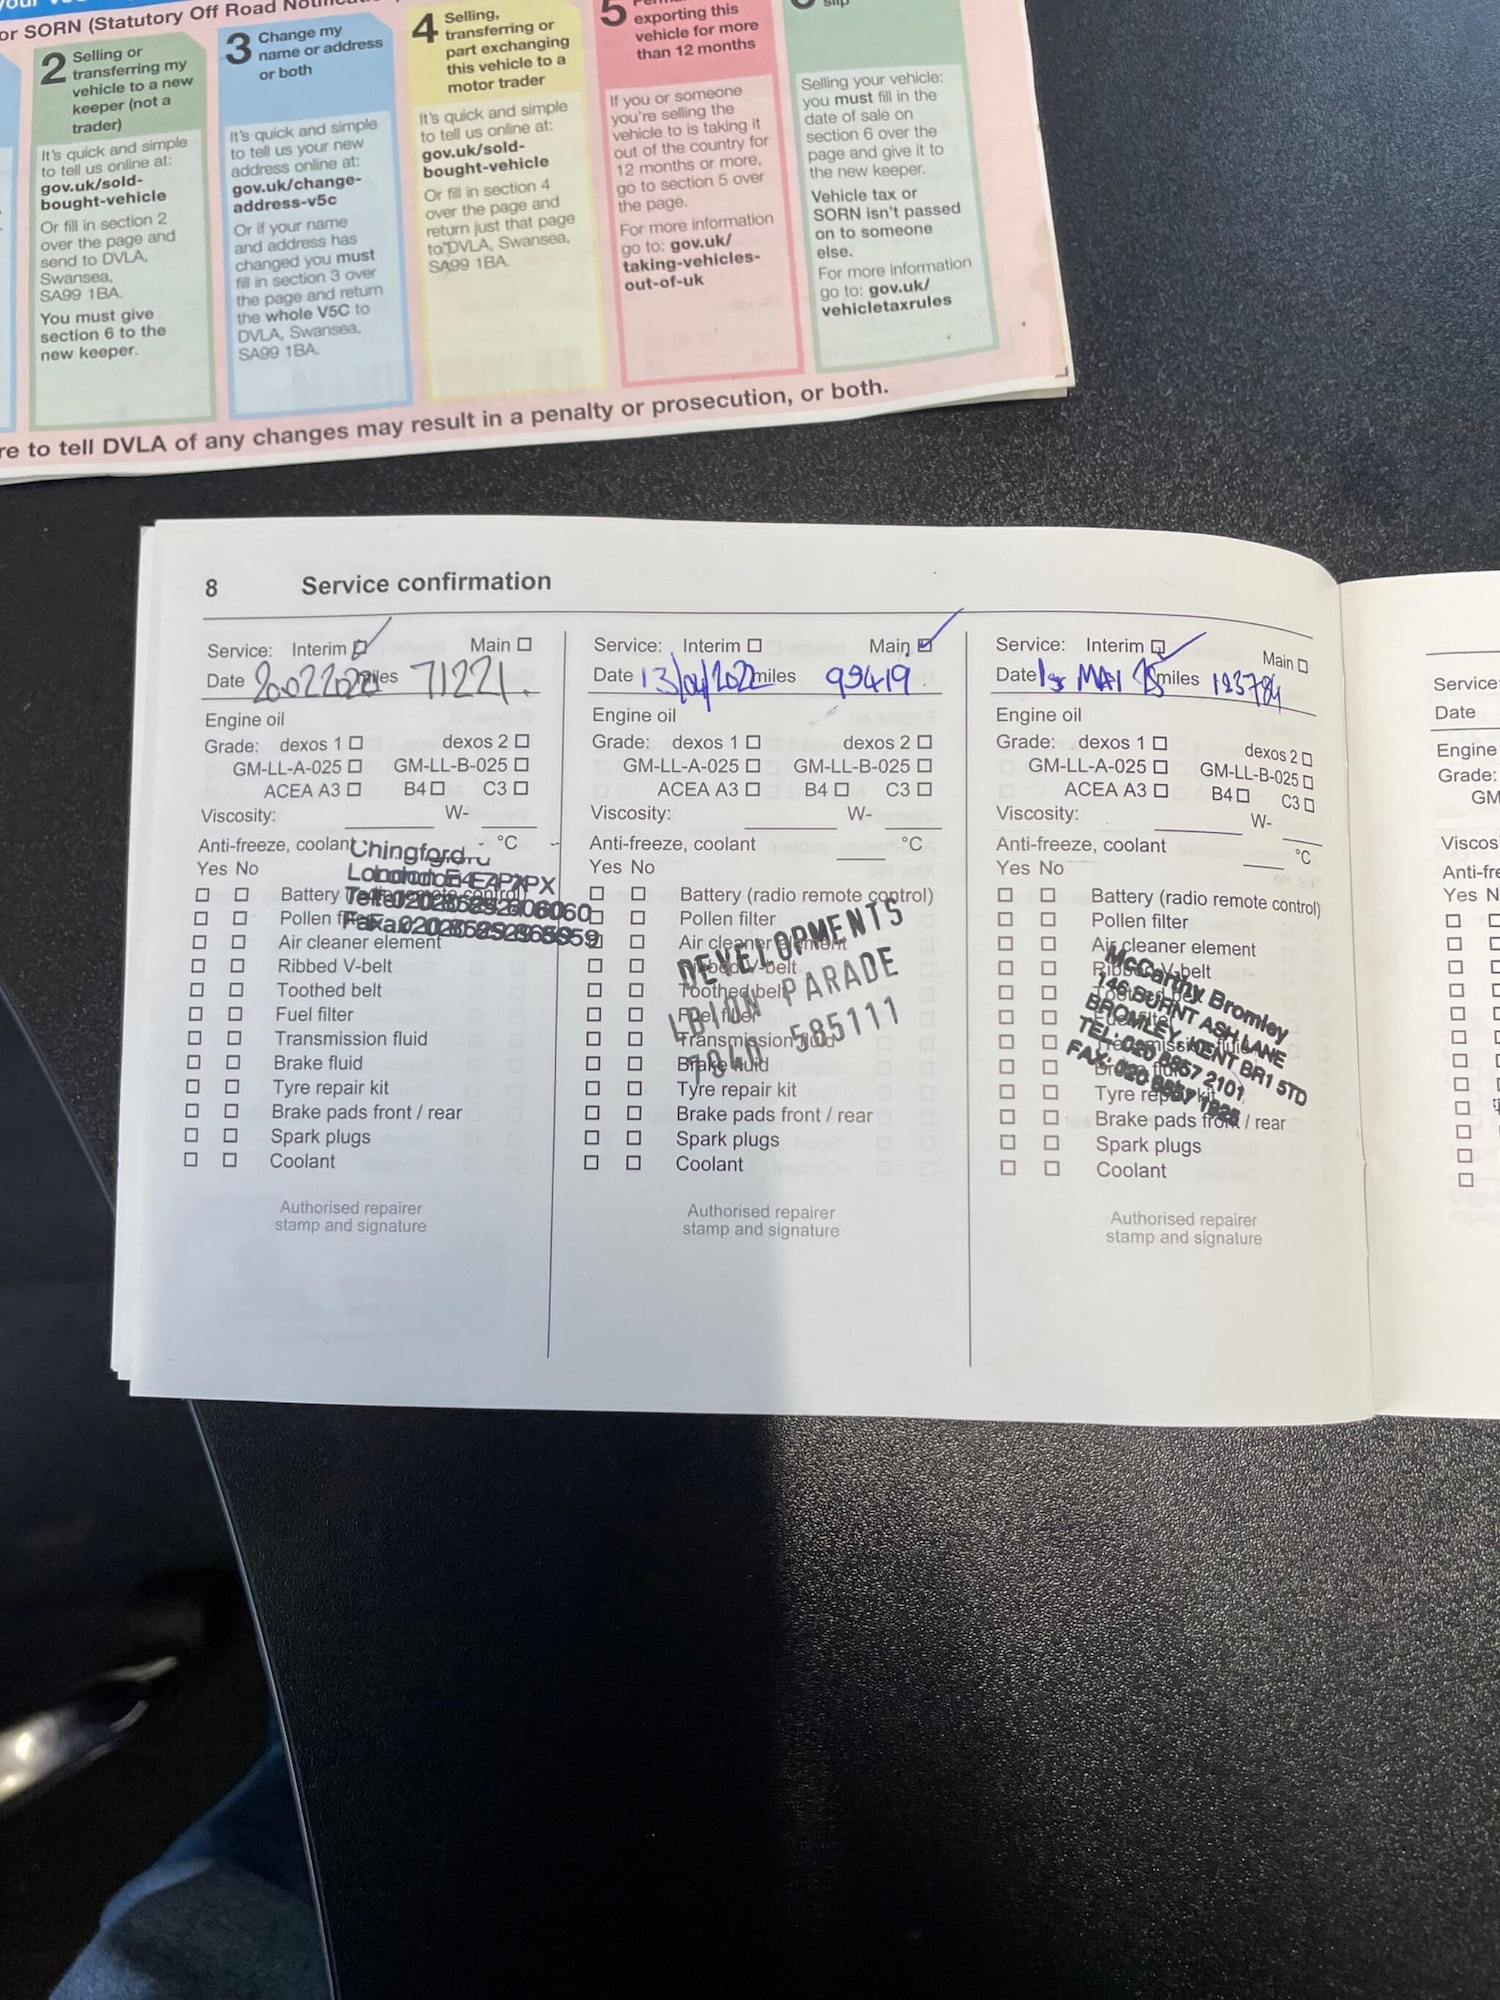 or SORN (Statutory Off Road
2 Selling or
transferring my
vehicle to a new
keeper (not a
trader)
It's quick and simple
to tell us online at:
gov.uk/sold-
bought-vehicle
Or fill in section 2
over the page and
send to DVLA,
Swansea,
SA99 1BA.
You must give
section 6 to the
new keeper.
3 Change my
name or address
or both
It's quick and simple
to tell us your new
address online at:
gov.uk/change-
address-v5c
Or if your name
and address has
changed you must
fill in section 3 over
the page and return
the whole V5C to
DVLA, Swansea,
SA99 1BA.
4 Selling,
transferring or
part exchanging
this vehicle to a
motor trader
It's quick and simple
to tell us online at:
gov.uk/sold-
bought-vehicle
Or fill in section 4
over the page and
return just that page
to DVLA, Swansea,
SA99 1BA.
5
exporting this
vehicle for more
than 12 months
If you or someone
you're selling the
vehicle to is taking it
out of the country for
12 months or more,
go to section 5 over
the page.
For more information
go to: gov.uk/
taking-vehicles-
out-of-uk
slip
Selling your vehicle:
you must fill in the
date of sale on
section 6 over the
page and give it to
the new keeper.
Vehicle tax or
SORN isn't passed
on to someone
else.
For more information
go to: gov.uk/
vehicletaxrules
re to tell DVLA of any changes may result in a penalty or prosecution, or both.
8 Service confirmation
Service: Interim Main
Date 20.02.2020 miles 71221.
Engine oil
Grade: dexos 1 dexos 2
GM-LL-A-025 GM-LL-B-025
ACEA A3 B4 C3
Viscosity: W-
Anti-freeze, coolant °C
Yes No
Chingford
London E4 7PX
Battery
Pollen
Air cleaner element
Ribbed V-belt
Toothed belt
Fuel filter
Transmission fluid
Brake fluid
Tyre repair kit
Brake pads front / rear
Spark plugs
Coolant
Authorised repairer
stamp and signature
Service: Interim Main
Date 13/04/2022 miles 99419.
Engine oil
Grade: dexos 1 dexos 2
GM-LL-A-025 GM-LL-B-025
ACEA A3 B4 C3
Viscosity: W-
Anti-freeze, coolant °C
Yes No
Battery (radio remote control)
Pollen filter
Air cleaner element
Ribbed V-belt
Toothed belt
Fuel filter
Transmission fluid
Brake fluid
Tyre repair kit
Brake pads front / rear
Spark plugs
Coolant
DEVELOPMENTS
LBION PARADE
7940 585111
Authorised repairer
stamp and signature
Service: Interim Main
Date MAI miles 123784
Engine oil
Grade: dexos 1 dexos 2
GM-LL-A-025 GM-LL-B-025
ACEA A3 B4 C3
Viscosity: W-
Anti-freeze, coolant °C
Yes No
Battery (radio remote control)
Pollen filter
Air cleaner element
Ribbed V-belt
Tyre repair kit
Brake pads front / rear
Spark plugs
Coolant
McCarthy Bromley
146 BURNT ASH LANE
BROMLEY, KENT BR1 5TD
TEL: 020 8857 2101
FAX: 020 8857 1925
Authorised repairer
stamp and signature
Service
Date
Engine
Grade:
GM
Viscos
Anti-fre
Yes N